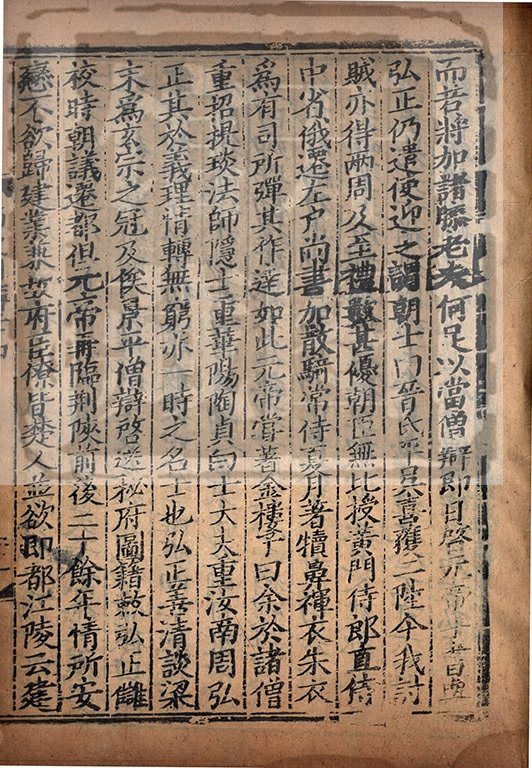 而若將加諸滕老夫何足以當僧辯即日啓元帝手書曰
弘正仍遣使迎之謂朝士曰晉氏平吳喜獲二陸今我討
賊亦得兩周及至禮數甚優朝臣無比授黃門侍郎直侍
中省俄遷左戶尚書加散騎常侍夏月著犢鼻褌衣朱衣
爲有司所彈其作達如此元帝嘗著金樓子曰余於諸僧
重招提琰法師隱士重華陽陶貞白士大夫重汝南周弘
正其於義理情轉無窮亦一時之名士也弘正善清談梁
末爲玄宗之冠及侯景平僧辯啓送秘府圖籍敕弘正讎
校時朝議遷都但元帝再臨荆陜前後二十餘年情所安
戀不欲歸建業兼故府臣僚皆楚人並欲即都江陵云建